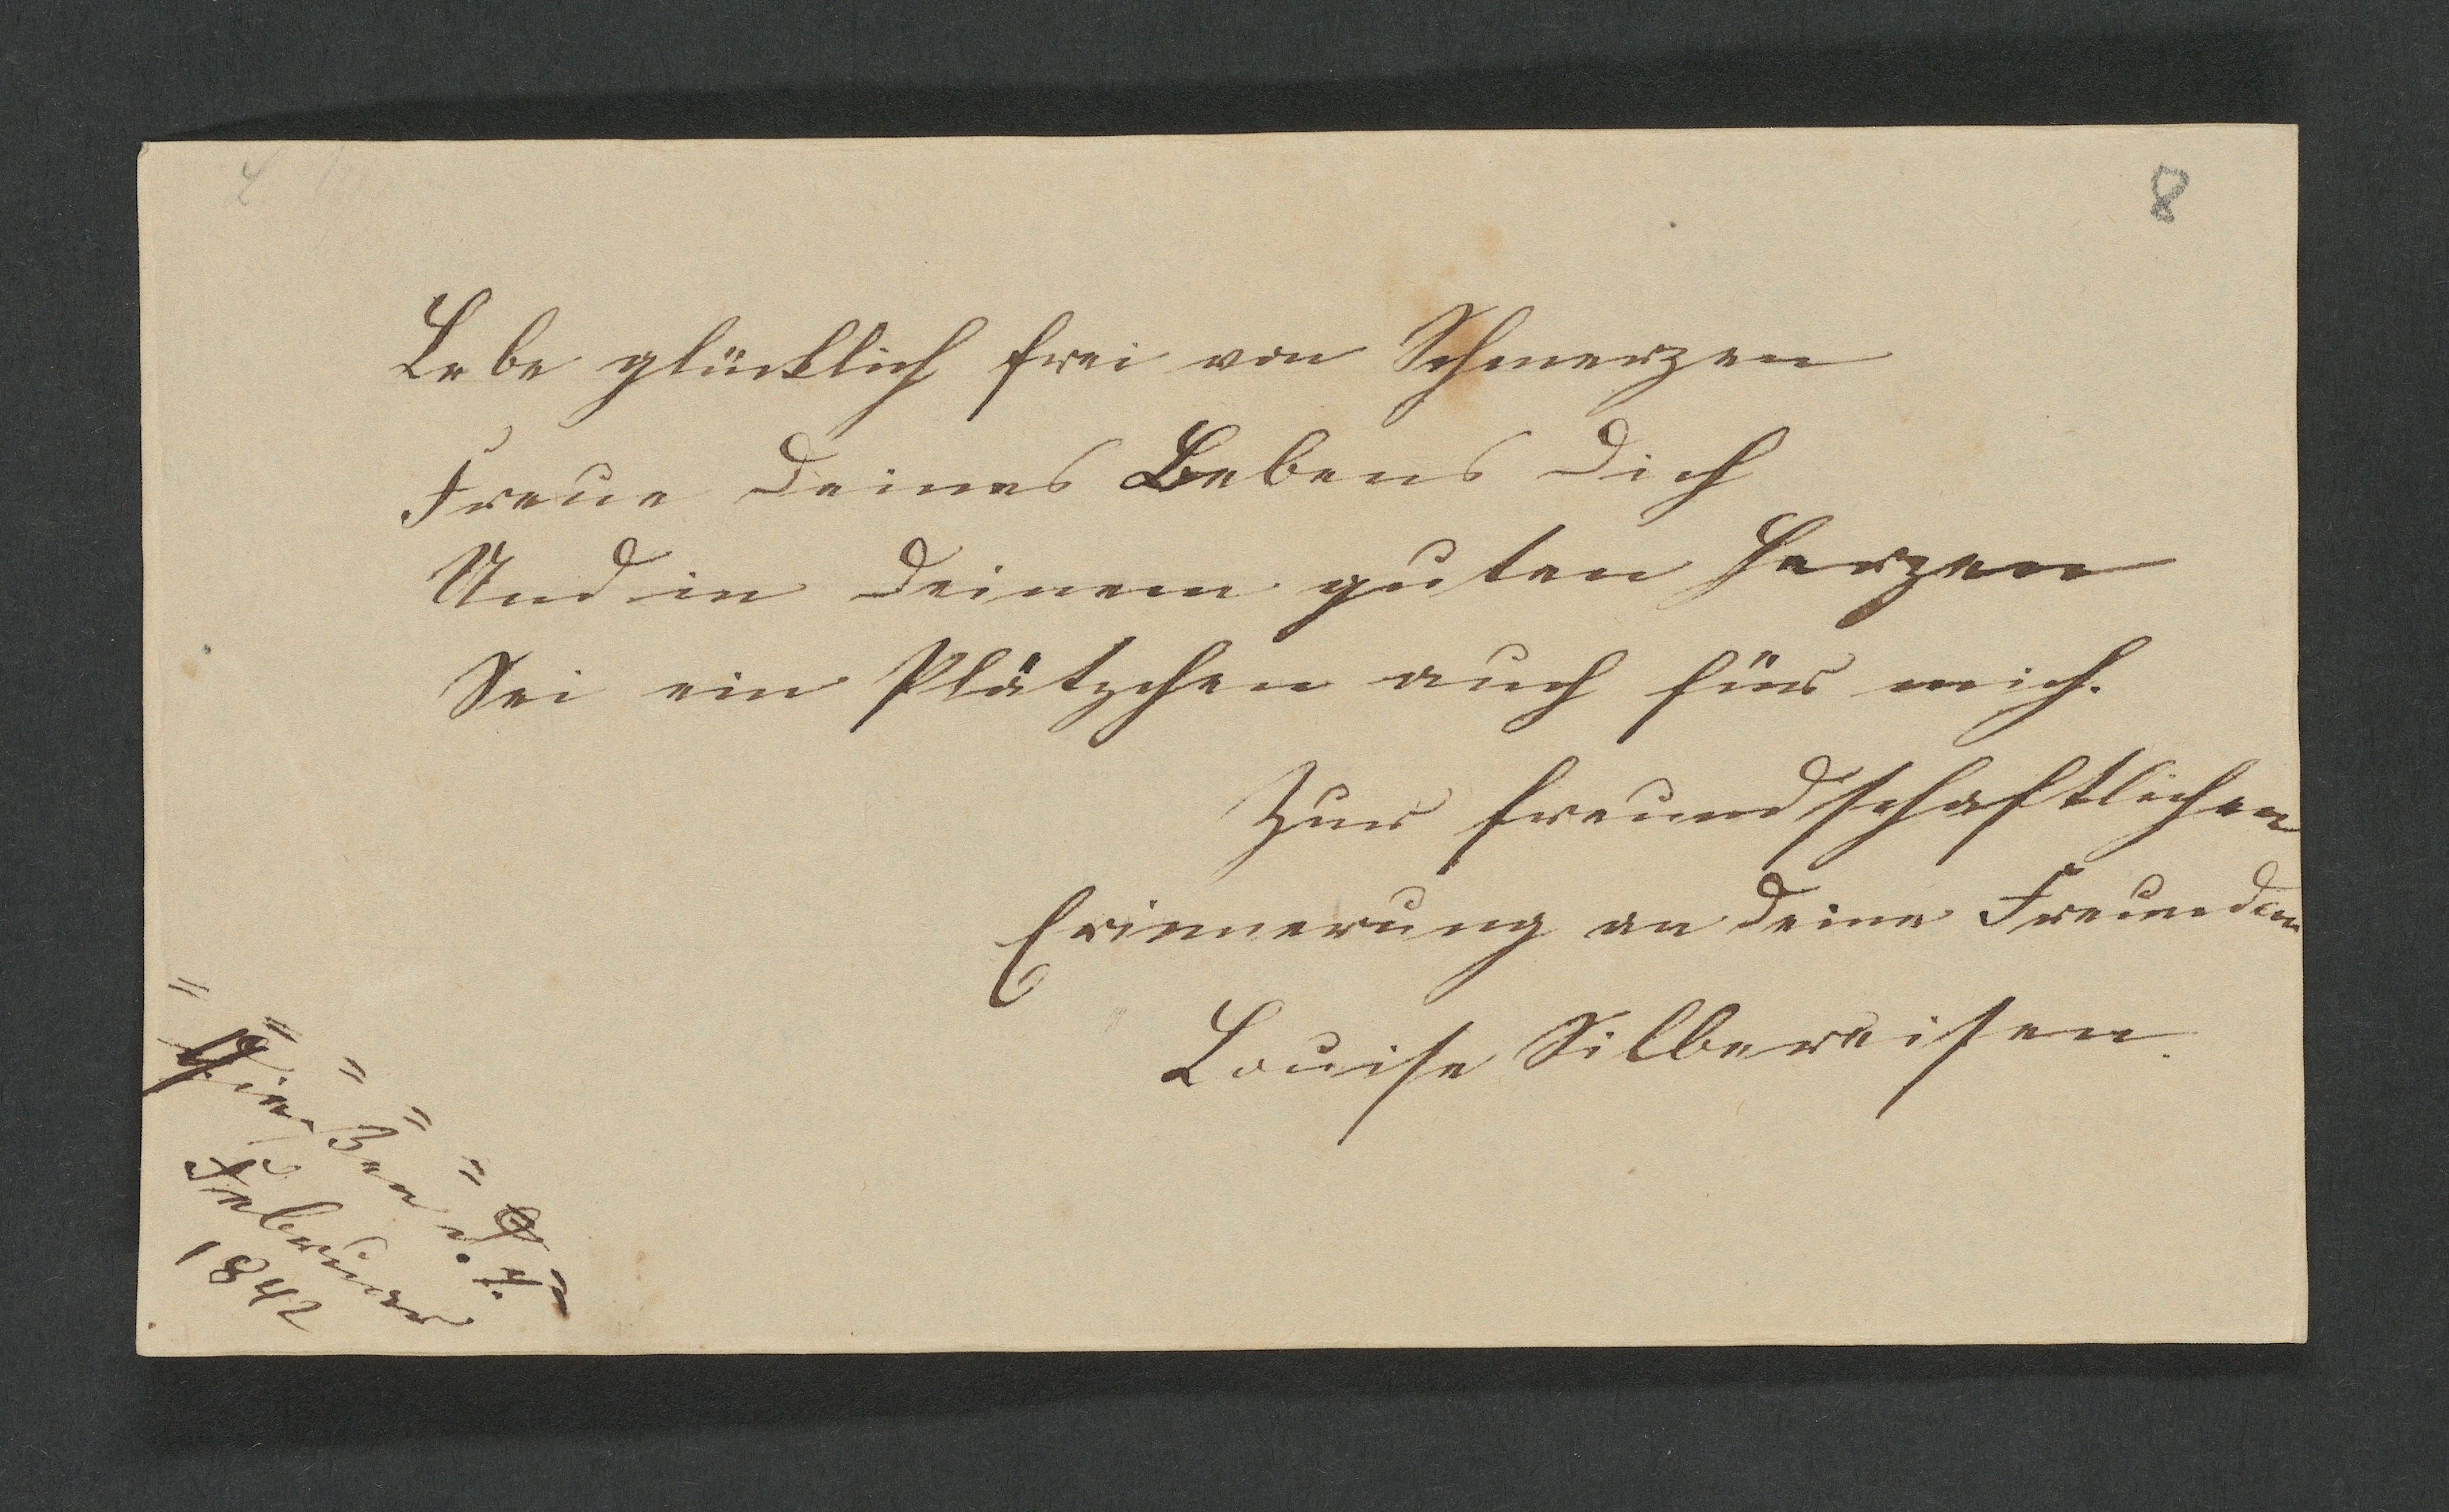 8
Lebe glücklich frei von Schmerzen
Freue deines Lebens dich
Und in deinem guten Herzen
Sei ein Plätzchen auch für mich.
Zur freundschaftlichen
Erinnerung an deine Freundin
Louise Silbereisen.
Gießen d.
Februar
1842